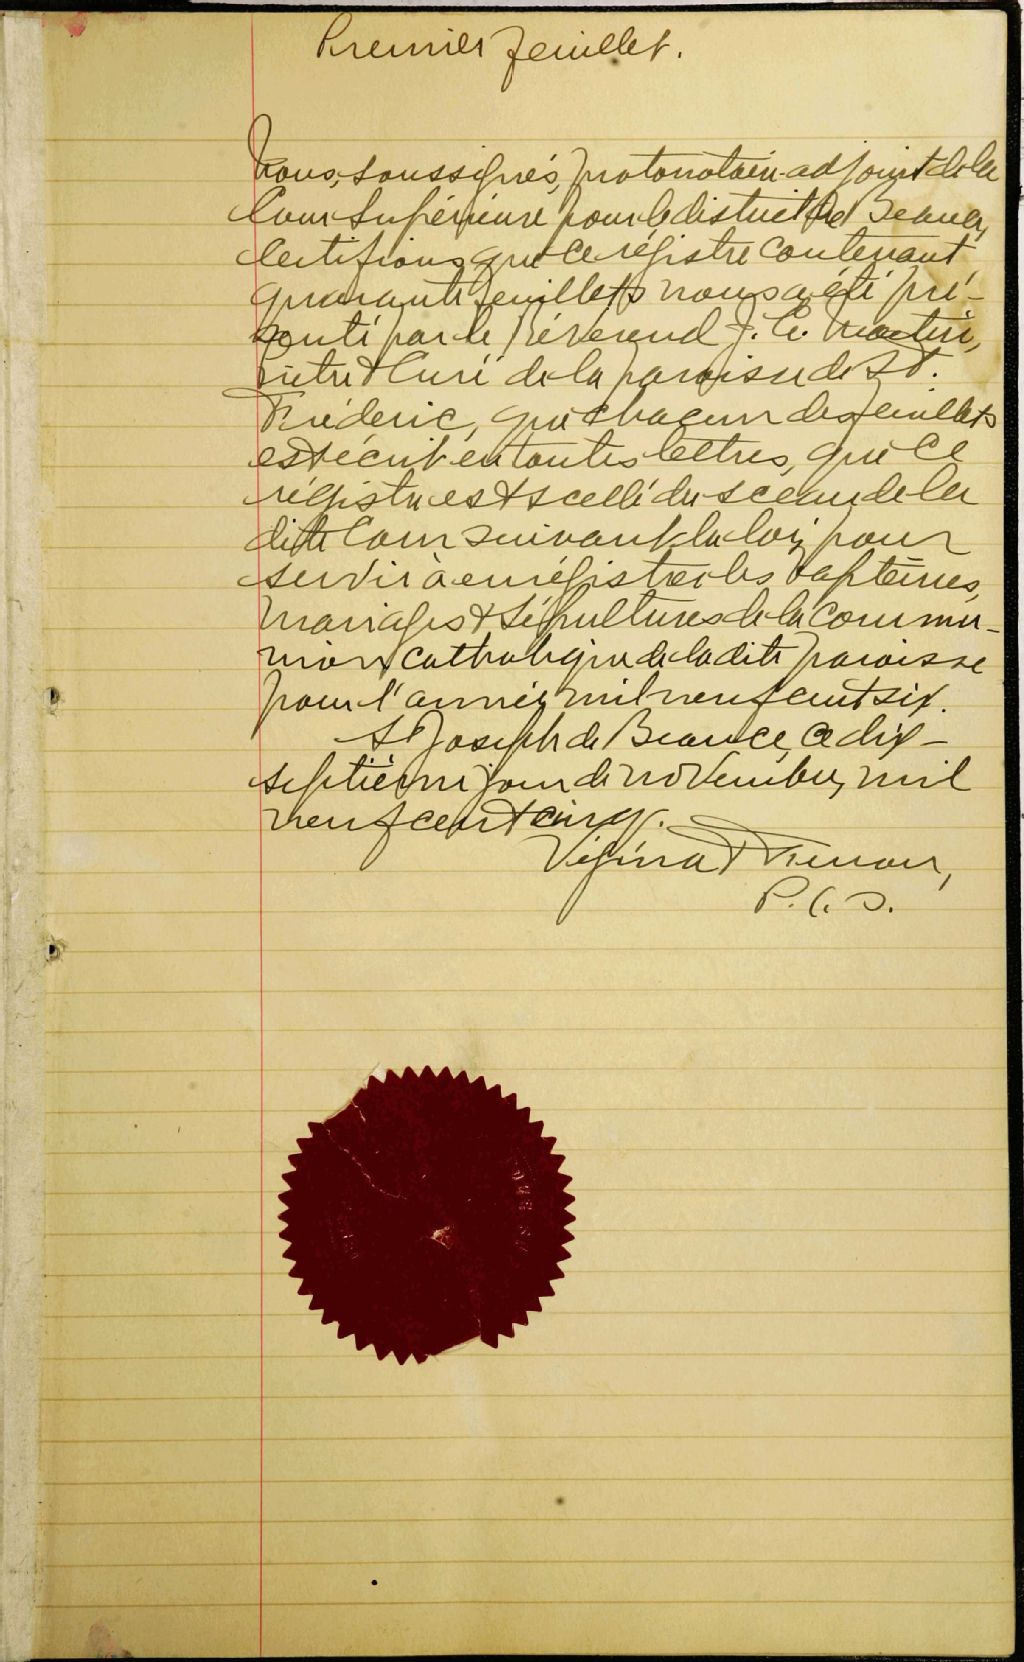 Premier feuillet.
Nous, soussignés, protonotaire-adjoint de la
Cour Supérieure pour le district de Beauce,
Certifions que ce régistre contenant
quarante feuillets nous a été pré-
senté par le Révérend J. E. Martin,
Prêtre & Curé de la paroisse de St.
Frédéric, que chacun des feuillets
est écrit en toutes lettres, que ce
régistre est scellé du sceau de la
dite Cour suivant la loi, pour
servir à enrégistrer les baptêmes,
mariages & sépultures de la commu-
nion catholique de la dite paroisse
pour l'année mil neuf cent six.
St Joseph de Beauce, ce dix-
septième jour de novembre, mil
neuf cent cinq.
Vézina &
P. C. S.